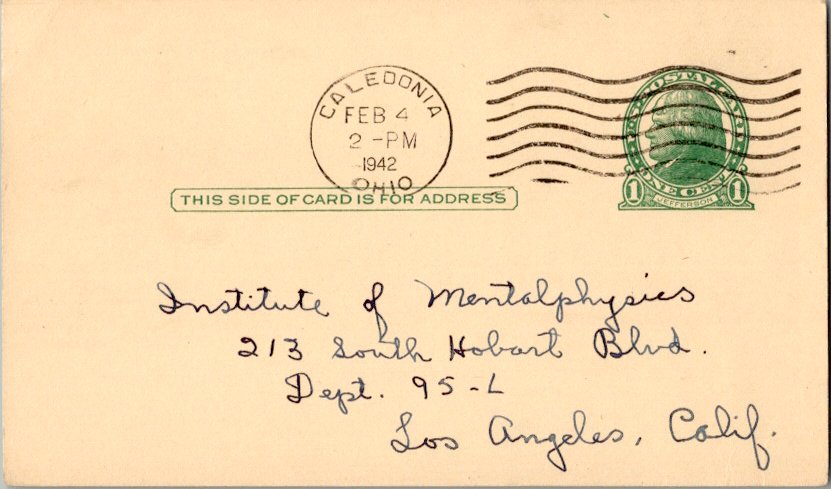 CALEDONIA
FEB 4
2 -PM
1942
OHIO
U.S. POSTAL CARD
ONE CENT
1 JEFFERSON 1
THIS SIDE OF CARD IS FOR ADDRESS
Institute of Mentalphysics
213 South Hobart Blvd.
Dept. 95-L
Los Angeles, Calif.